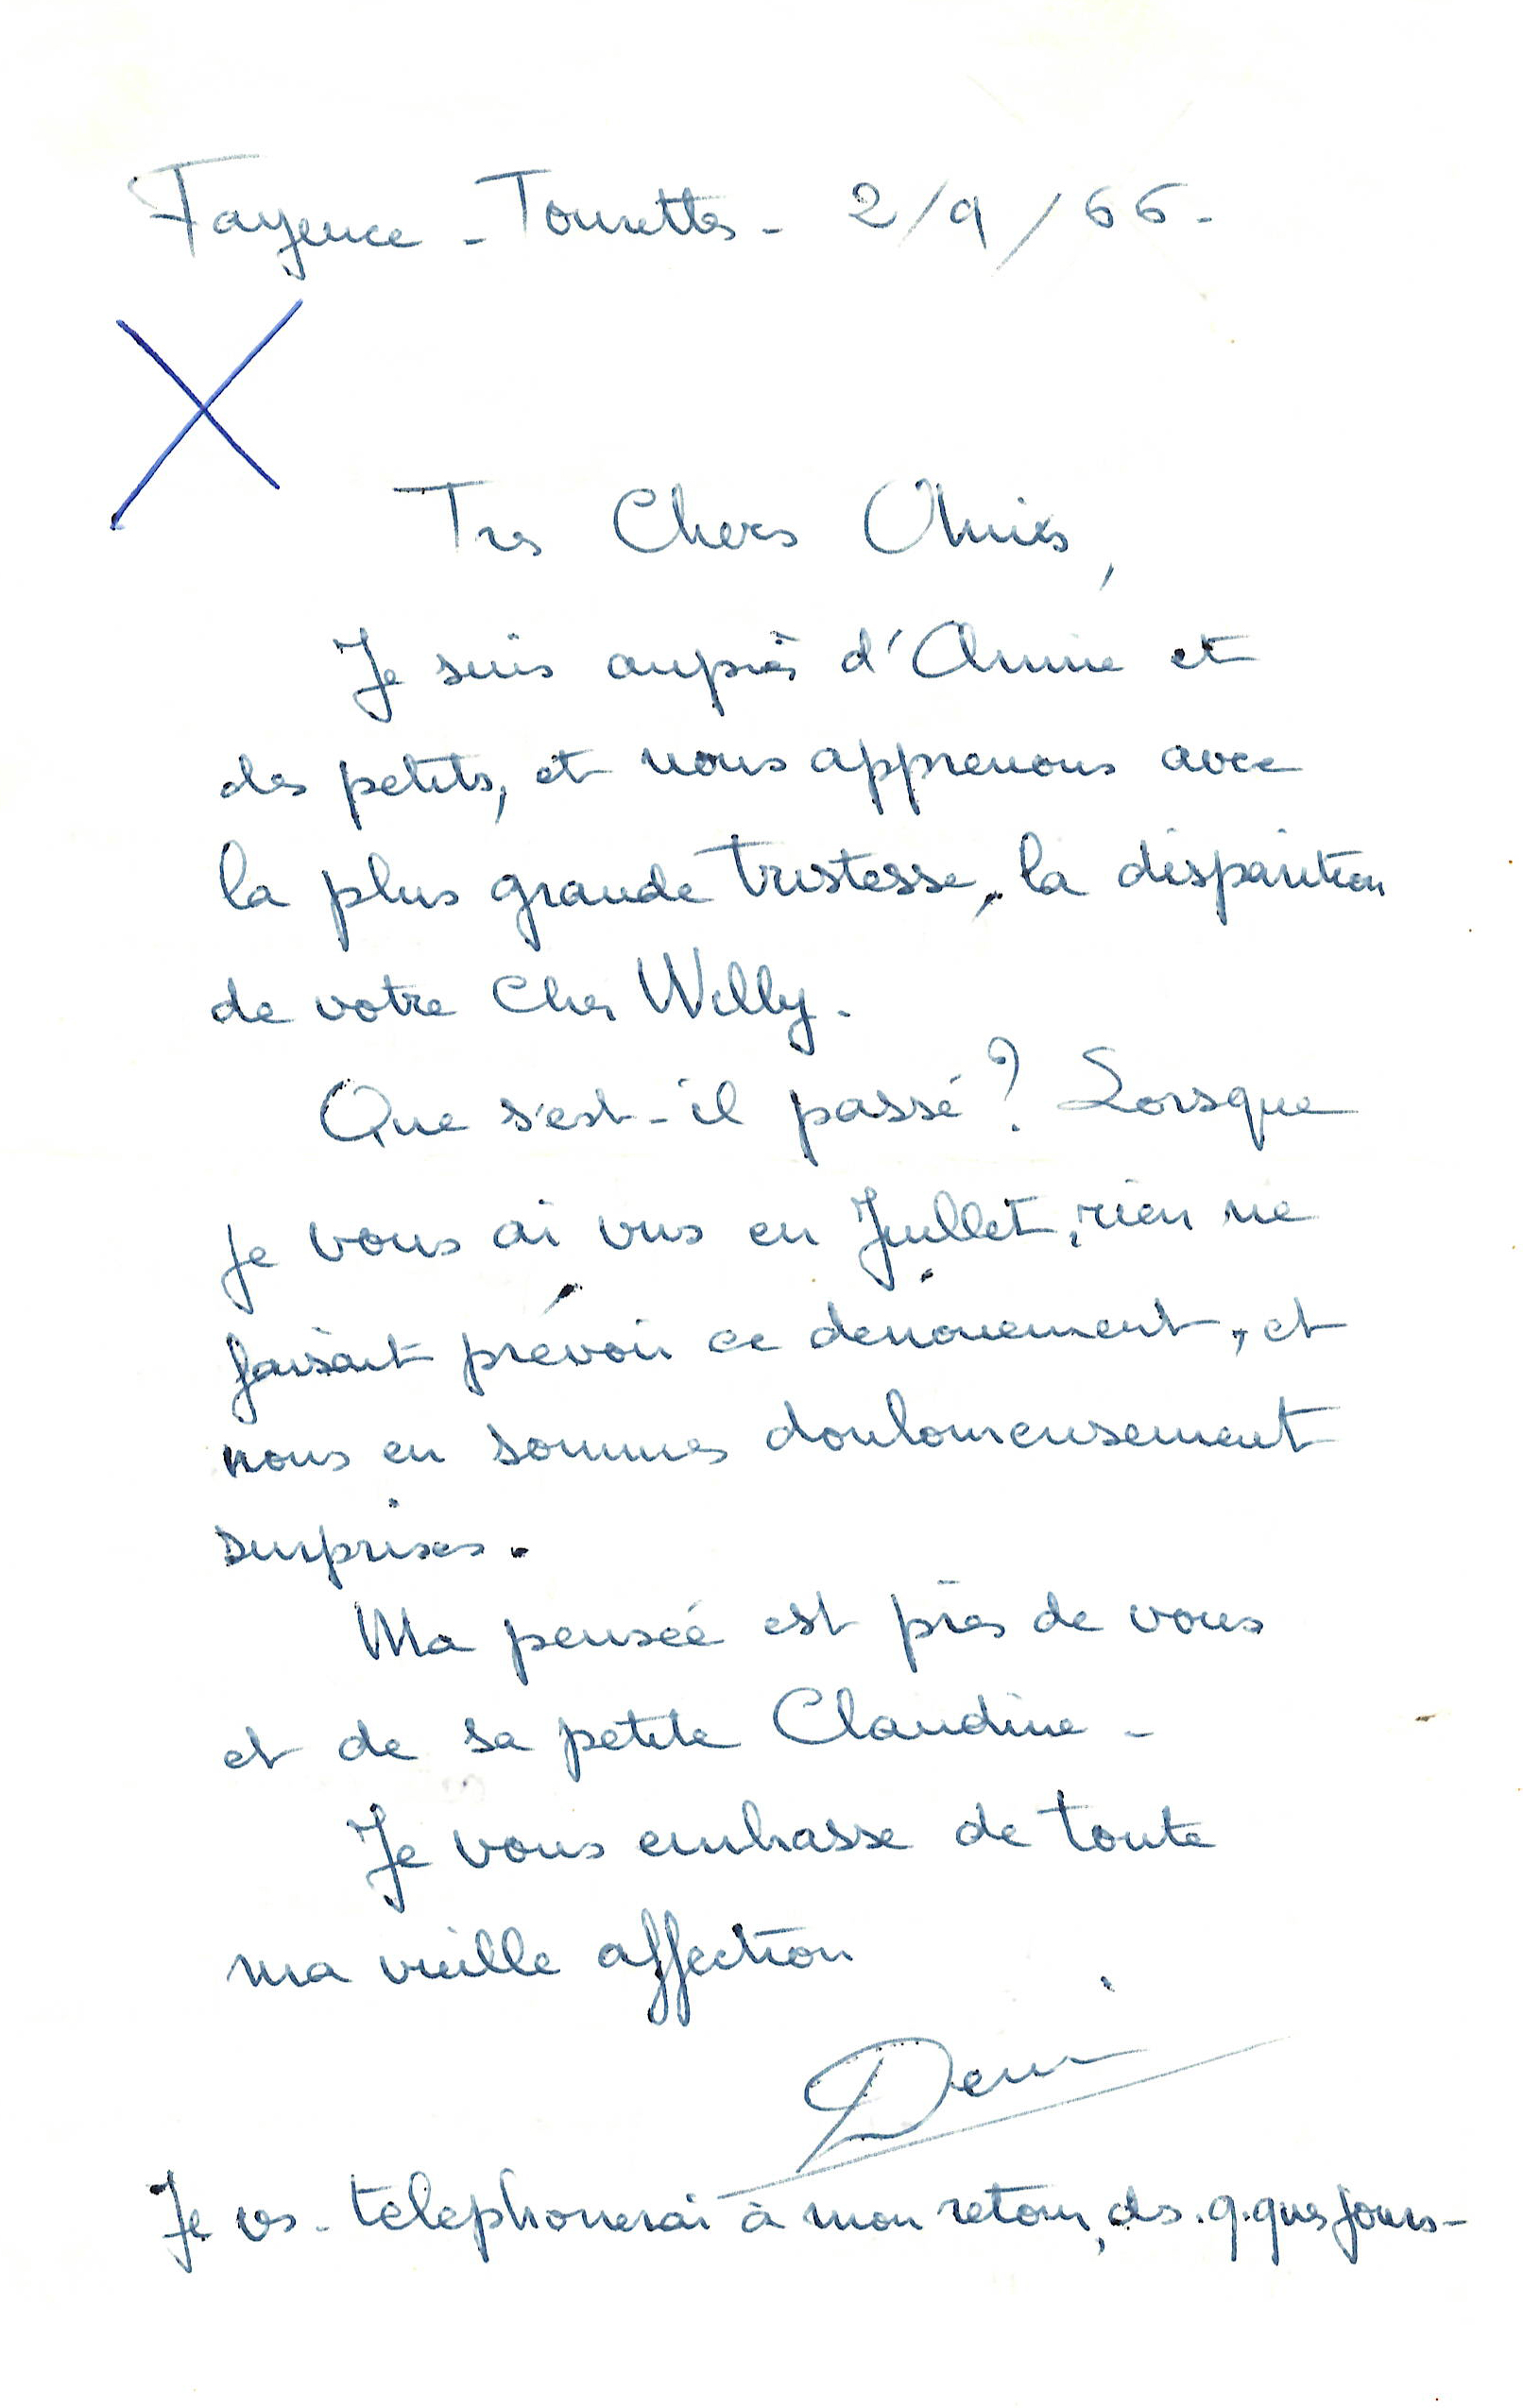 Fayence - Tourettes - 2/9/66 -
X
Tres Chers Amis,
Je suis auprès d'Annie et
des petits, et nous apprenons avec
la plus grande tristesse, la disparition
de votre Cher Willy.
Que s'est-il passé? Lorsque
je vous ai vus en Juillet, rien ne
faisait prévoir ce denouement, et
nous en sommes douloureusement
surprises.
Ma pensée est près de vous
et de sa petite Claudine -
Je vous embrasse de toute
ma vieille affection
Je vs. telephonerai à mon retour, ds. q.ques jours -